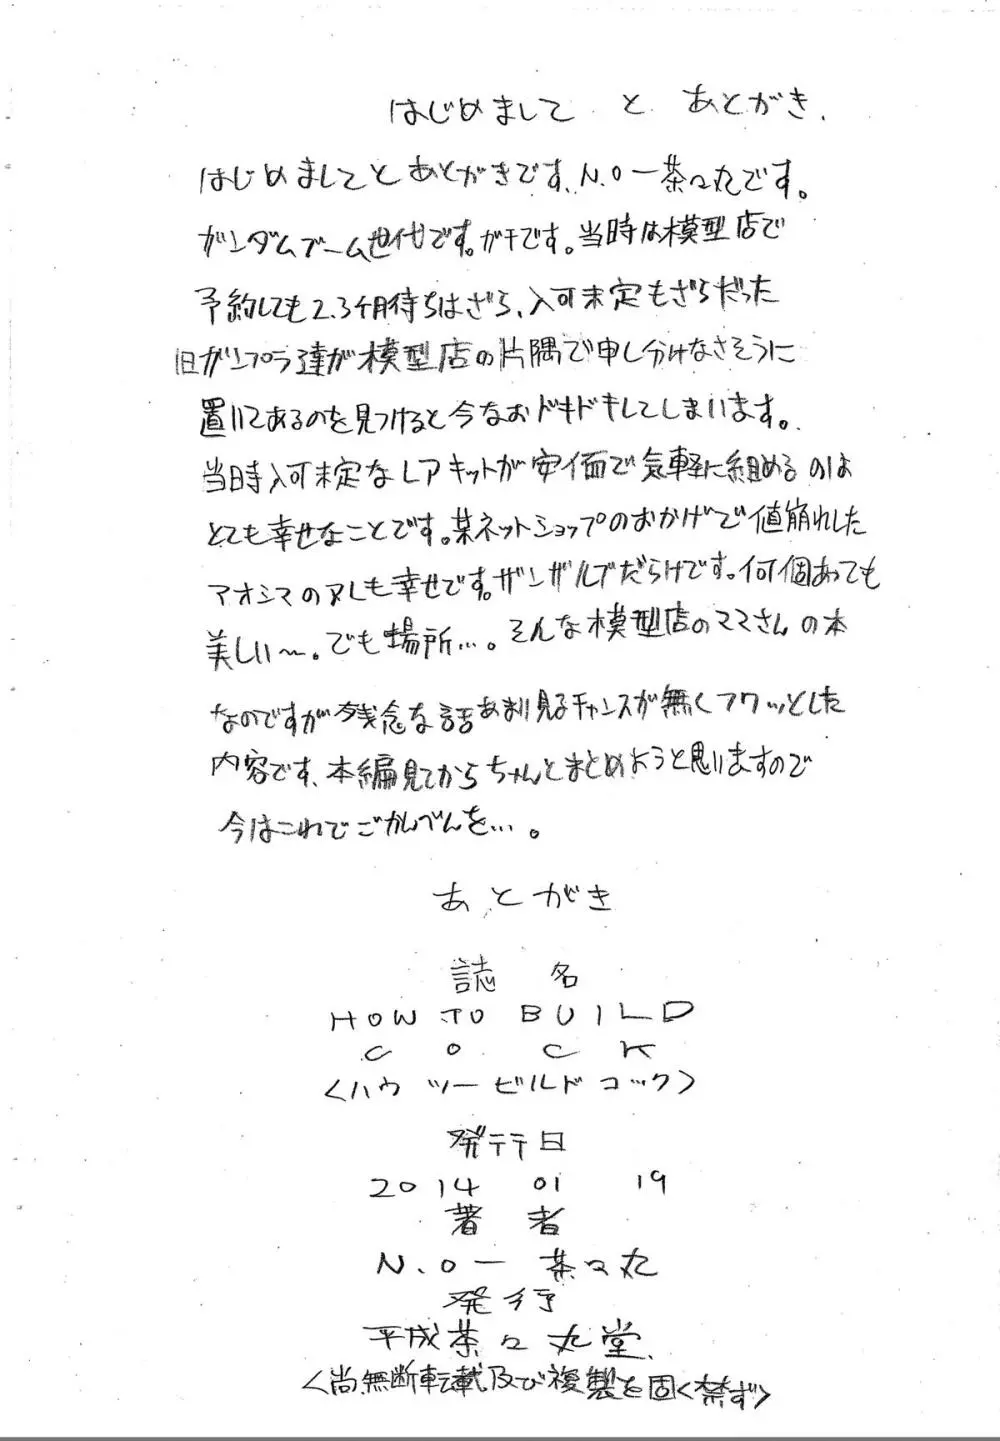 はじめまして と あとがき.
はじめましてとあとがきです、N.O-茶々丸です。
ガンダムブーム世代です。ガチです。当時は模型店で
予約しても2.3ヶ月待ちはざら、入可未定もざらだった
旧ガンプラ達が模型店の片隅で申し分けなさそうに
置いてあるのを見つけると今なおドキドキしてしまいます。
当時入可未定なレアキットが安価で気軽に組めるのは
とても幸せなことです。某ネットショップのおかげで値崩れした
アオシマのヌレも幸せです。ザンザルブだらけです。何個あっても
美しい〜。でも場所…。そんな模型店のママさんの本
なのですが残念な話あまり見るチャンスが無くフワッとした
内容です、本編見てからちゃんとまとめようと思いますので
今はこれでごかんべんを…。
あとがき
誌 名
HOW TO BUILD
COCK
<ハウ ツー ビルド コック>
発行日
2014 01 19
著 者
N.O-茶々丸
発行
平成茶々丸堂.
<尚無断転載及び複製を固く禁ず>